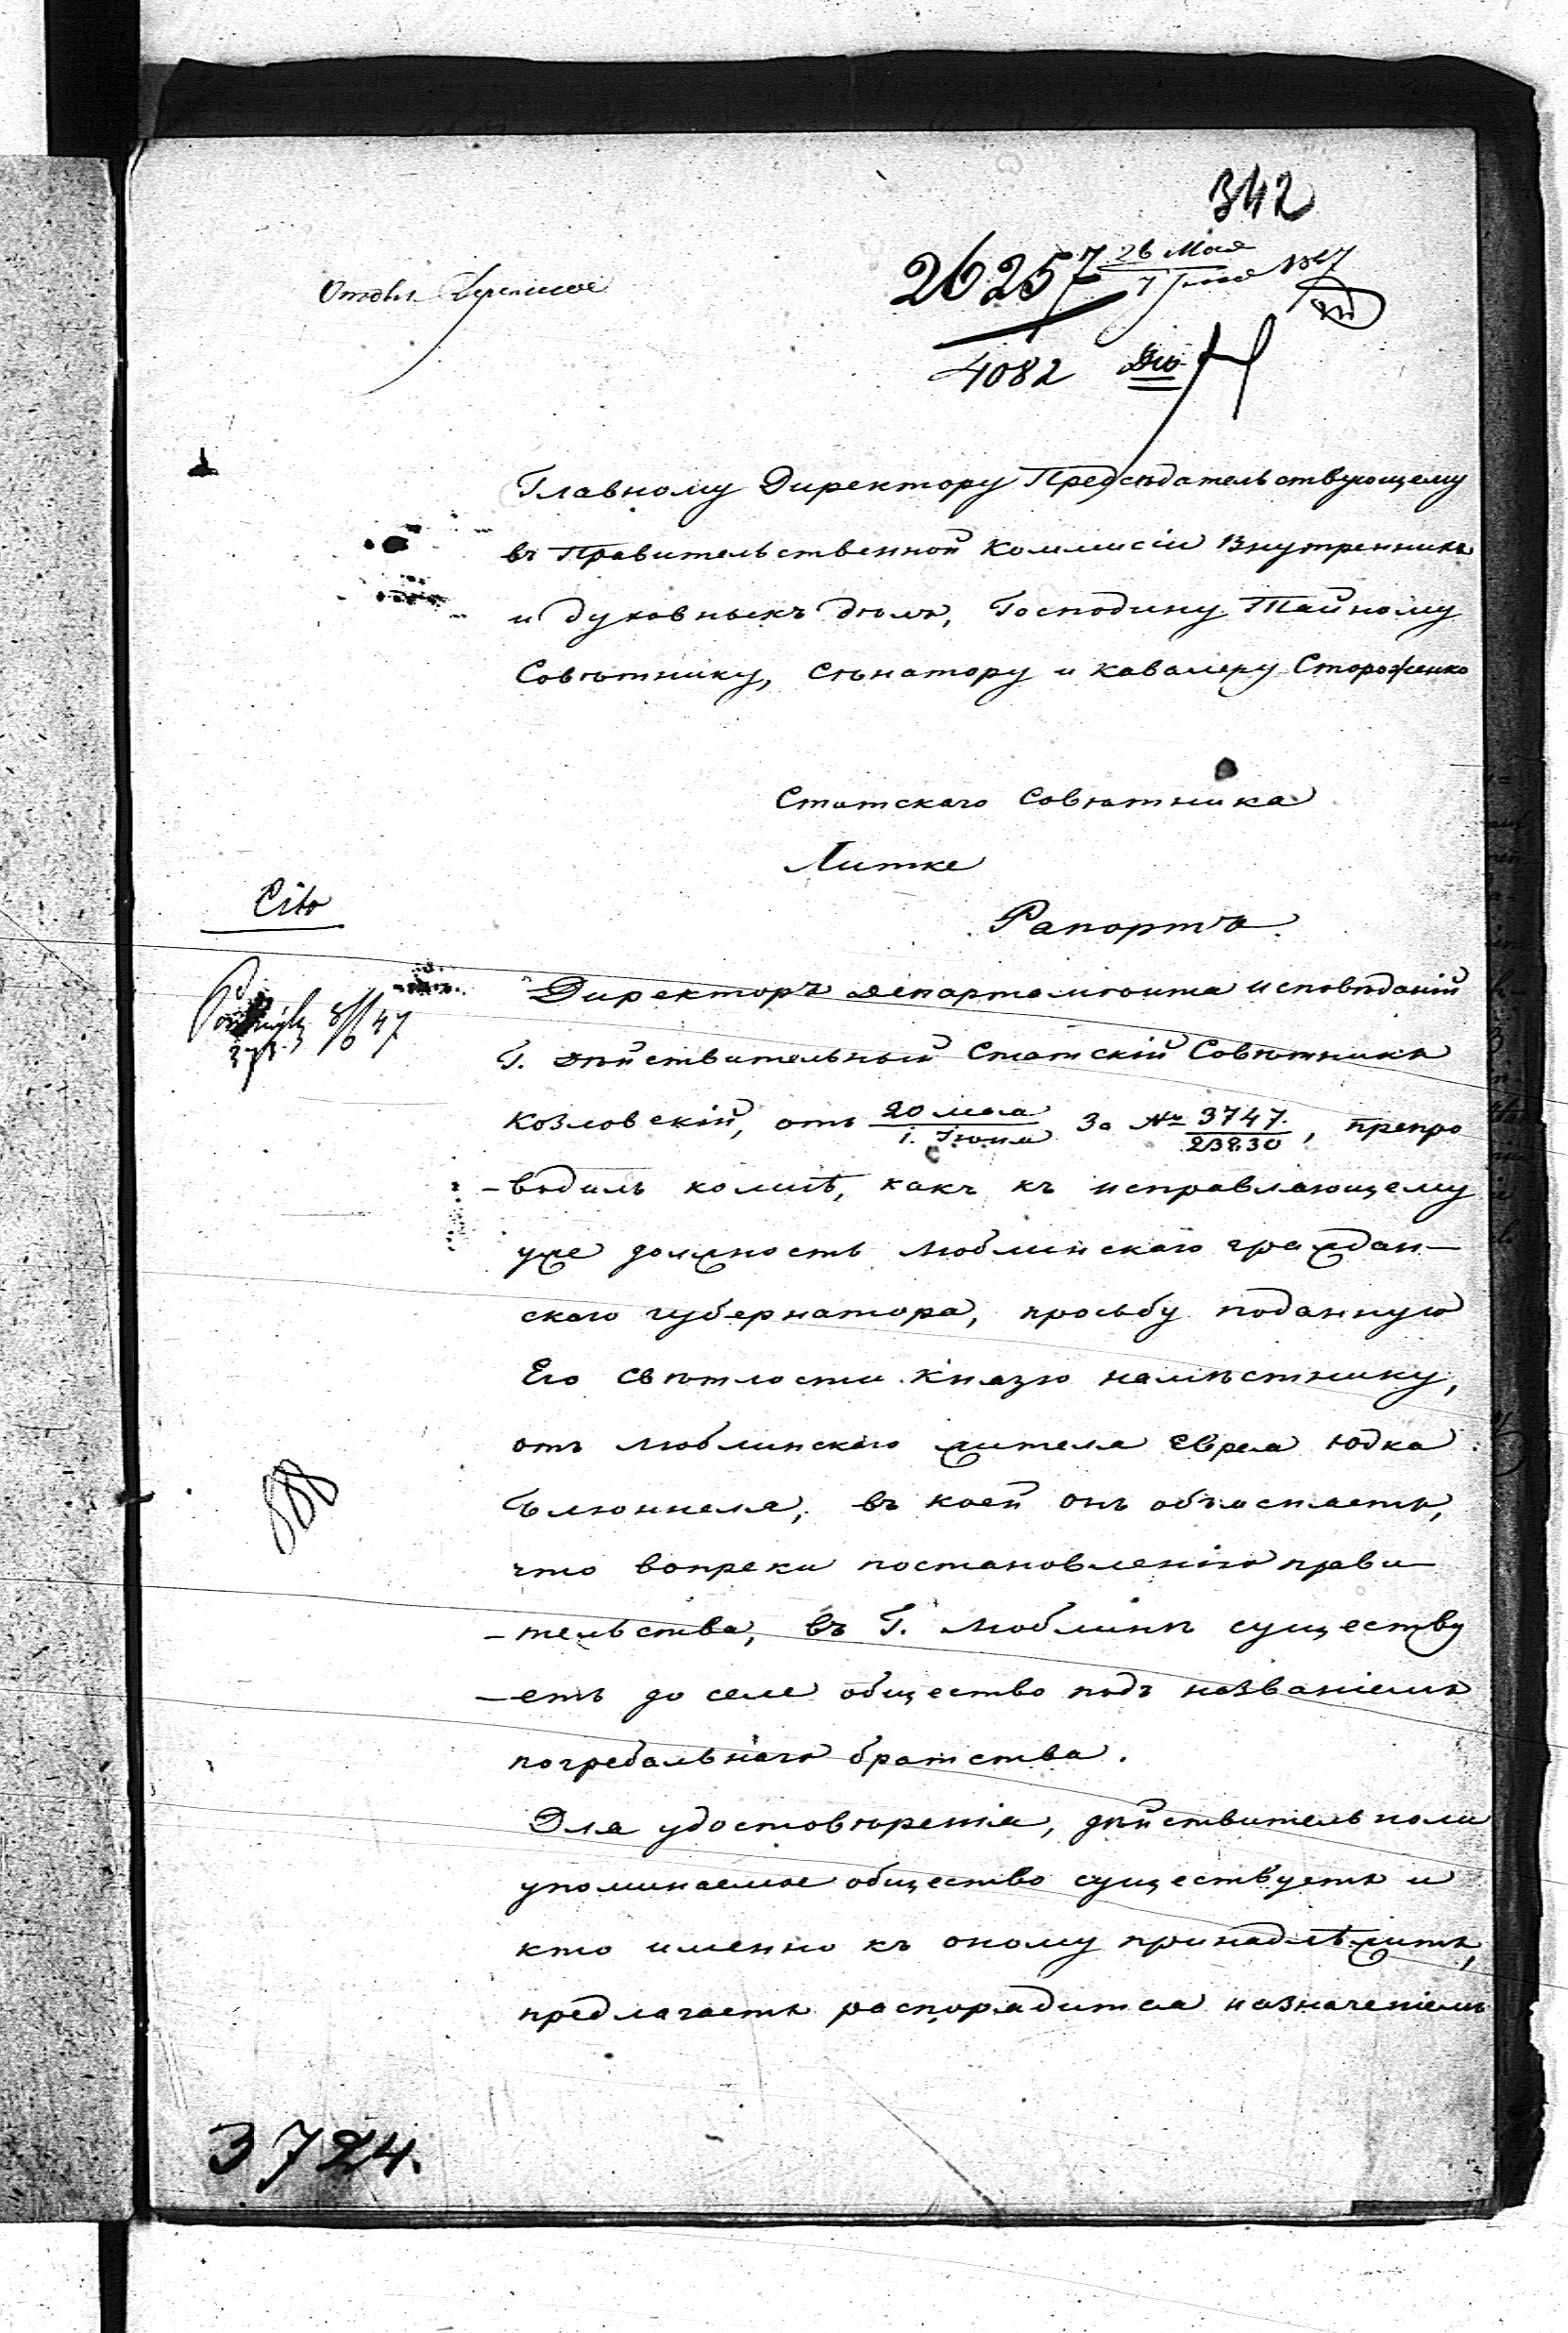 342
26257 26 Мая 1847
4082
Главному Директору Предсѣдательствующему
въ Правительственной Коммисіи Внутреннихъ
и духовныхъ дѣлъ, Господину Тайному
Совѣтнику, Сѣнатору и кавалеру Стороженко
Статскаго Совѣтника
Литке
Рапортъ
Cito
8/6 47
Директоръ департамѣнта исповѣданій
Г. дѣйствительный Статскій Совѣтникъ
Козловскій, отъ 20 мая / 1. Іюня за № 3747. / 23830, препро
-водилъ комнѣ, какъ къ исправляющему
уже должность люблинскаго граждан-
скаго губернатора, просьбу поданную
Его Свѣтлости Князю намѣстнику,
отъ люблинскаго жителя Еврея Юдка
въ коей онъ объясняетъ,
что вопреки постановленію прави-
-тельства, въ Г. Люблинѣ существу
-етъ до селе общество подъ названіемъ
погребальнаго братства.
Для удостовѣренія, дѣйствительноли
упоминаемое общество существуетъ и
кто именно къ оному принадлѣжитъ,
предлагаетъ распорядится назначеніемъ
888
3724.